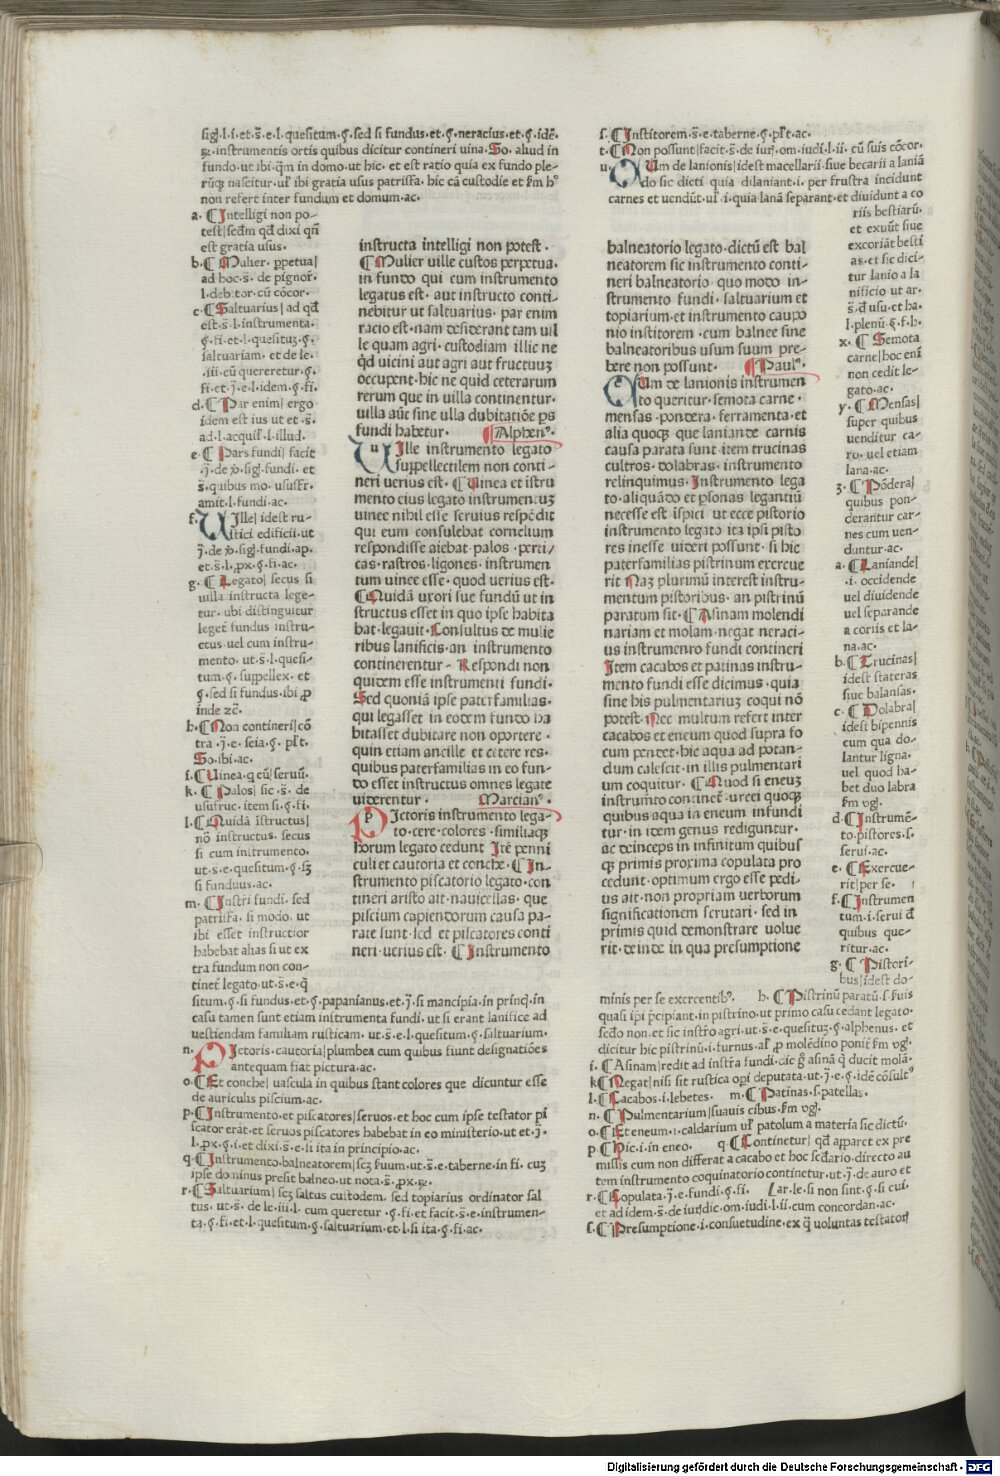 sigl·l·i·et·s̄·e·l·quesitum·ꝯ·sed si fundus·et·ꝯ·neracius·et·ꝯ·idē·
instrumentis ortis quibus dicitur contineri uina·So·aliud in
fundo·ut ibi·q̄m in domo·ut hic·et est ratio quia ex fundo ple-
rūq; nascitur·ul' ibi gratia usus patrisfa·hic cā custodie et fm h°
non refert inter fundum et domum·ac·
a·¶Intelligi non po-
test|scdm qd dixi qñ
est gratia usus·
b·¶Mulier·ppetua|
ad hoc·s̄·de pignor·
l·debitor·cū cōcor·
c·¶Saltuarius|ad qd
est·s̄·l·instrumenta·
ꝯ·fi·et·l·quesituz·ꝯ·
saltuariam·et de le·
·iii·cū quereretur·ꝯ·
fi·et·j̄·e·l·idem·ꝯ·fi·
d·¶Par enim|ergo
idem est ius ut et·s̄·
ad·l·acquis·l·illud·
e·¶Pars fundi|facit
sigl·fundi·et
s̄·quibus mo·ususfr·
amit·l·fundi·ac·
f·Uille|idest ru-
stici edificii·ut
sigl·fundi·ap·
et·s̄·l·px·ꝯ·fi·ac·
g·¶Legato|secus si
uilla instructa lege-
tur·ubi distinguitur
leget fundus instru-
ctus uel cum instru-
mento·ut·s̄·l·quesi-
tum·ꝯ·suppellex·et
ꝯ·sed si fundus·ibi p
inde zc̄·
h·¶Non contineri|cō
tra·j̄·e·seia·ꝯ·pl't·
So·ibi·ac·
i·¶Uinea·q eū|seruū·
k·¶Palos|sic·s̄·de
usufruc·item si·ꝯ·fi·
l·¶Quidā īstructus|
nō instructus·secus
si cum instrumento·
ut·s̄·e·quesitum·ꝯ·sz
si funduus·ac·
m·¶Instri fundi·sed
patrisfa·si modo·ut
ibi esset instructior
habebat alias si ut ex
tra fundum non con-
tinet legato·ut·s̄·e·q̄
situm·ꝯ·si fundus·et·ꝯ·papanianus·et·j̄·si mancipia·in princ·in
casu tamen sunt etiam instrumenta fundi·ut si erant lanifice ad
uestiendam familiam rusticam·ut·s̄·e·l·quesitum·ꝯ·saltuarium·
n·Pictoris·cautoria|plumbea cum quibus fiunt designatiōes
antequam fiat pictura·ac·
o·¶Et conche|uascula in quibus stant colores que dicuntur esse
de auriculis piscium·ac·
p·¶Instrumento·et piscatores|seruos·et hoc cum ipse testator pi
scator erat·et seruos piscatores habebat in eo ministerio·ut et·j̄·
l·px·ꝯ·i·et dixi·s̄·e·si ita in principio·ac·
q·¶Instrumento·balneatorem|scz suum·ut·s̄·e·taberne·in fi·cuz
ipse dominus presit balneo·ut nota·s̄·px·
r·¶Saltuarium|scz saltus custodem·sed topiarius ordinator sal
tus·ut·s̄·de le·iii·l·cum queretur·ꝯ·fi·et facit·s̄·e·instrumen-
ta·ꝯ·fi·et·l·quesitum·ꝯ·saltuarium·et·l·si ita·ꝯ·fi·ac·
instructa intelligi non potest·
¶Mulier uille custos perpetua·
in fundo qui cum instrumento
legatus est·aut instructo conti-
nebitur ut saltuarius·par enim
racio est·nam desiderant tam uil
le quam agri·custodiam illic ne
qd uicini aut agri aut fructuuz
occupent·hic ne quid ceterarum
rerum que in uilla continentur·
uilla aut sine ulla dubitatiōe ps
fundi habetur·¶Alphen°·
Uille instrumento legato
suppellectilem non conti-
neri uerius est·¶Uinea et istru
mento eius legato instrumentuz
uinee nihil esse seruius respōdit
qui eum consulebat cornelium
respondisse aiebat·palos·perti-
cas·rastros·ligones·instrumen
tum uinee esse·quod uerius est·
¶Quidā uxori sue fundū ut in
structus esset in quo ipse habita
bat·legauit·Consultus de mulie
ribus lanificis·an instrumento
continerentur·Respondi non
quidem esse instrumenti fundi·
Sed quoniā ipse paterfamilias·
qui legasset in eodem fundo ha
bitasset dubitare non oportere·
quin etiam ancille et cetere res·
quibus paterfamilias in eo fun-
do esset instructus omnes legate
uiderentur·Marcian°·
Pictoris instrumento lega-
to·cere·colores·similiaq;
horum legato cedunt Itē penni
culi et cautoria et conche·¶In-
strumento piscatorio legato·con
tineri aristo ait·nauicellas·que
piscium capiendorum causa pa-
rate sunt·sed et piscatores conti
neri·uerius est·¶Instrumento
balneatorio legato·dictū est bal
neatorem sic instrumento conti-
neri balneatorio quo modo in-
strumento fundi·saltuarium et
topiarium·et instrumento caupo
nio institorem·cum balnee sine
balneatoribus usum suum pre-
bere non possunt·¶Paul°·
Cum de lanionis instrumen
to queritur·semota carne·
mensas·pondera·ferramenta·et
alia quoq; que laniande carnis
causa parata sunt·item trucinas
cultros·dolabras·instrumento
relinquimus·Instrumento lega
to·aliquādo et psonas legantiū
necesse est·ispici ut ecce pistorio
instrumento legato ita ipsi pisto
res inesse uideri possunt·si hic
paterfamilias pistrinum exercue
rit Naz plurimū interest instru-
mentum pistoribus·an pistrinū
paratum sit·¶Asinam molendi
nariam et molam·negat neraci-
us instrumenro fundi contineri
Item cacabos et patinas instru-
mento fundi esse dicimus·quia
sine his pulmentariuz coqui nō
potest·Nec multum refert inter
cacabos et eneum quod supra fo
cum pendet·hic aqua ad potan-
dum calescit·in illis pulmentari
um coquitur·¶Quod si eneuz
instrumto continet·urcei quoq;
quibus aqua in eneum infundi
tur·in idem genus rediguntur·
ac deinceps in infinitum quibus
q; primis proxima copulata pro
cedunt·optimum ergo esse pedi-
us ait·non propriam uerborum
significationem scrutari·sed in
primis quid demonstrare uolue
rit·deinde in qua presumptione
s·¶Institorem·s̄·e·taberne·ꝯ·pl't·ac·
t·¶Non possunt|facit·s̄·de iur·om·iudi·l·ii·cū suis cōcor·
u·Cum de lanionis|idest macellarii·siue becarii a laniā
do sic dicti quia dilaniant·i·per frustra incidunt
carnes et uendūt·ul'·i·quia lanā separant·et diuidunt a co
riis bestiarū·
et exuūt siue
excoriāt besti
as·et sic dici-
tur lanio a la
nificio ut ar·
s̄·d usu·et ha·
l·plenū·ꝯ·f·h·
x·¶Semota
carne|hoc eni
non cedit le-
gato·ac·
y·¶Mensas|
super quibus
uenditur ca-
ro·uel etiam
lana·ac·
z·¶Pōdera|
quibus pon-
derantur car-
nes cum uen-
duntur·ac·
a·¶Laniande|
·i·occidende
uel diuidende
uel separande
a coriis et la-
na·ac·
b·¶Trucinas|
idest stateras
siue balansas·
c·¶Dolabra|
idest bipennis
cum qua do-
lantur ligna·
uel quod ha-
bet duo labra
fm ug·
d·¶Instrumē-
to·pistores·s·
serui·ac·
e·¶Exercue-
rit|per se·
f·¶Instrumen
tum·i·serui d
quibus que-
ritur·ac·
g·¶Pistori-
bus|idest do-
minis per se exercentib°·h·¶Pistrinū paratū·s·suis
quasi ipi pcipiant·in pistrino·ut primo casu cedant legato·
scdo non·et sic instro agri·ut·s̄·e·quesituz·ꝯ·alphenus·et
dicitur hic pistrinū·i·furnus·al' p molēdino ponit fm ug·
i·¶Asinam|redit ad instra fundi·dic g asinā q ducit molā·
k¶Negat|nisi sit rustica opi deputata·ut·j̄·e·ꝯ·idē cōsult°
l·¶Cacabos·i·lebetes·m·¶Patinas·s·patellas·
n·¶Pulmentarium|suauis cibus·fm ug·
o·¶Et eneum·i·caldarium ul' patolum a materia sic dictū·
p ¶Hic·i·in eneo·q·¶Continetur|qd apparet ex pre
missis cum non differat a cacabo et hoc scdario·directo au
tem instrumento coquinatorio continetur·ut·j̄·de auro et
r·¶Copulata·j̄·e·fundi·ꝯ·fi·Lar·le·si non sint·ꝯ·si cui·
et ad idem·s̄·de iurisdic·om·iudi·l·ii·cum concordan·ac·
s·¶Presumptione·i·consuetudine·ex q uoluntas testator
Digitalisierung gefördert durch die Deutsche Forschungsgemeinschaft - DFG